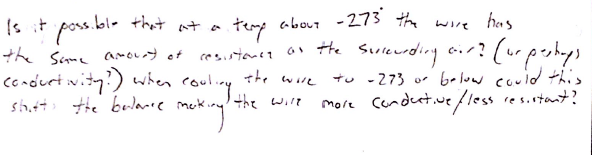 Is it possible that at a temp about -273° the wire has
the same amount of resistance as the surrounding air? (or perhaps
conductivity?) when cooling the wire to -273 or below could this
shift the balance making the wire more conductive/less resistant?